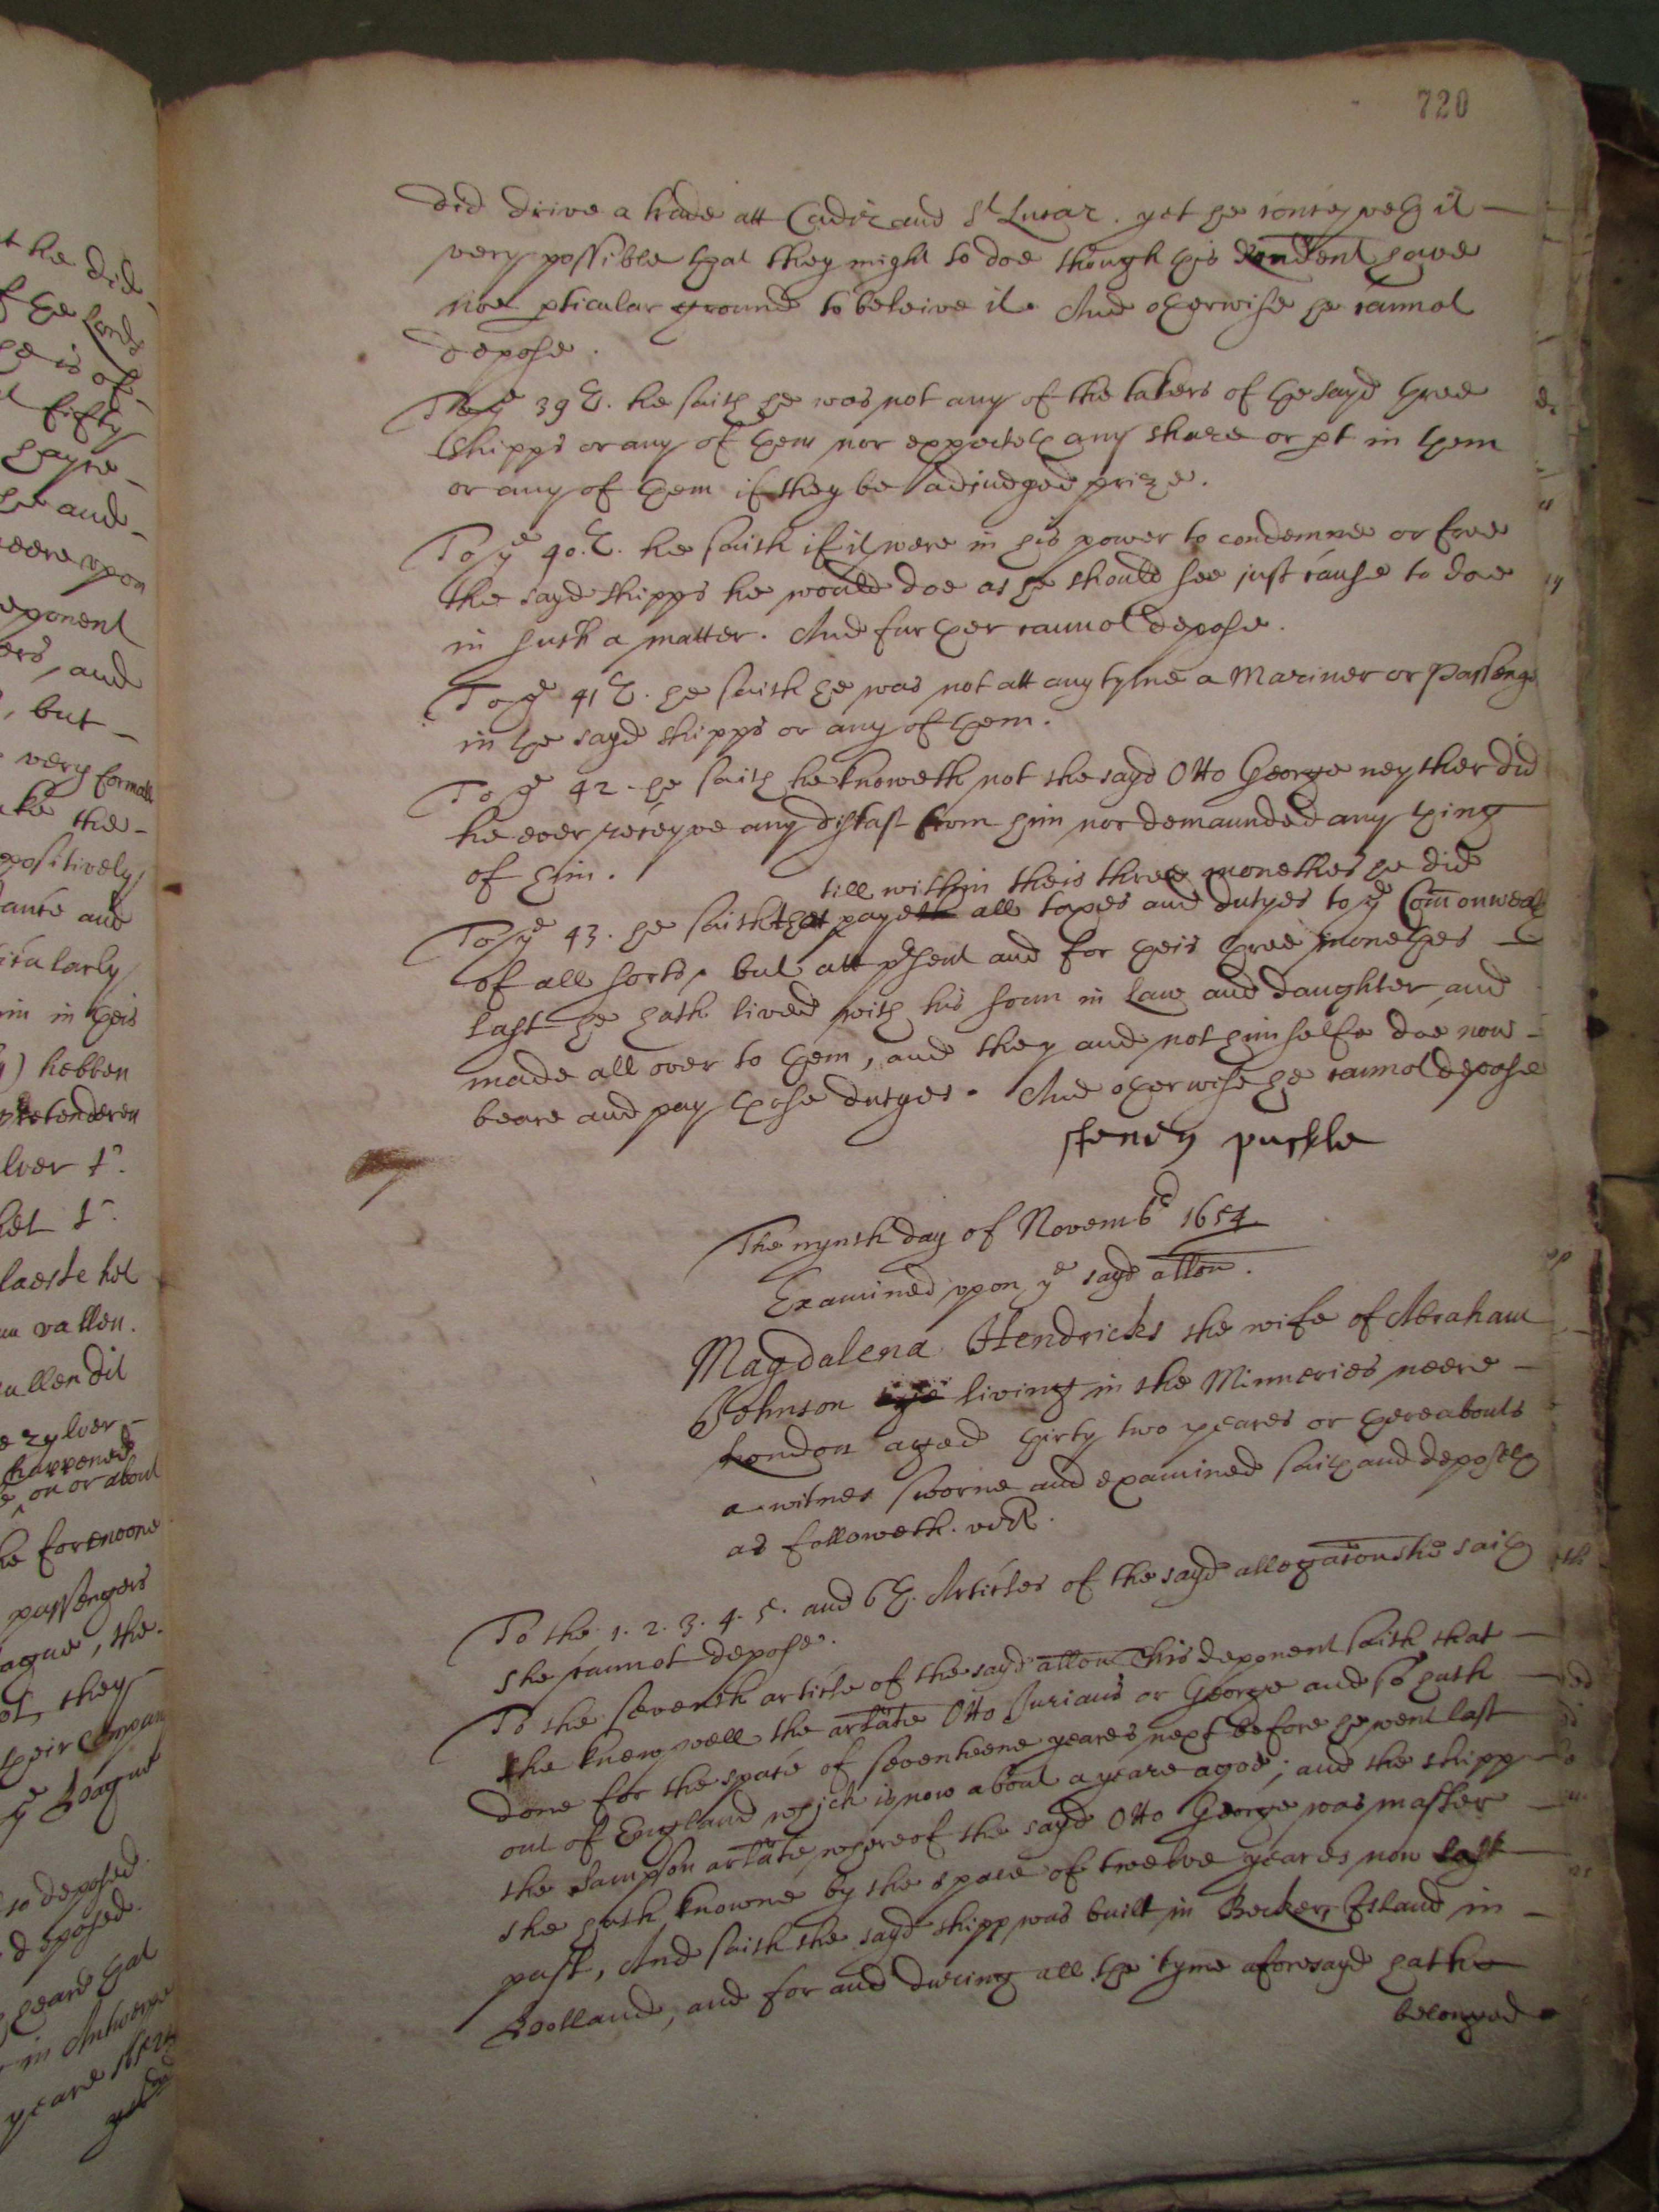 720
did drive a trade att Cadiz and St Lucar. yet he conceyveth it
very possible that they might so doe though this depondent have
noe pticular ground to beleive it. And otherwise he cannot
depose.
To ye 39th. he saith he was not any of the takers of the sayd three
shipps or any of them nor expecteth any share or pt in them
or any of them if they be adjudged prize.
To ye 40th. he saith if it were in his power to condemne or free
the sayd shipps he would doe as he should see just cause to doe
in such a matter. And further cannot depose.
To ye 41th. he saith he was not att any tyme a Mariner or passenger
in the sayd shipps or any of them.
To ye 42. he saith he knoweth not the sayd Otto George neyther did
he ever receyve any distast from him nor demaunded any thing
of him.
till within theis three monethes he did
To ye 43. he saith that payeth all taxes and dutyes to ye Comonwealth
of all sorts, but att psent and for theis three monethes
last he hath lived with his sonn in law and daughter and
made all over to them, and they and not himselfe doe now
beare and pay those dutyes. And otherwise he cannot depose
Henry puckle
The nynth day of Novembr 1654
Examined upon ye sayd allon.
Magdalena Hendricks the wife of Abraham
Johnson living in the Minneries neere
London aged thirty two yeares or thereabouts
a witnes sworne and examined saith and deposeth
as followeth. vizt.
To the 1. 2. 3. 4. 5. and 6th. Articles of the sayd allegacon she saith
she cannot depose.
To the seventh article of the sayd allon This deponent saith that
she knew well the arlate Otto Jurians or George and so hath
done for the space of seventeene yeares next before he went last
out of England which is now about a yeare agoe; and the shipp
the Sampson arlate whereof the sayd Otto George was master
she hath knowne by the space of twelve yeares now last
past, And saith the sayd shipp was built in Beckers Island in
Holland, and for and during all the tyme aforesayd hath
belonged